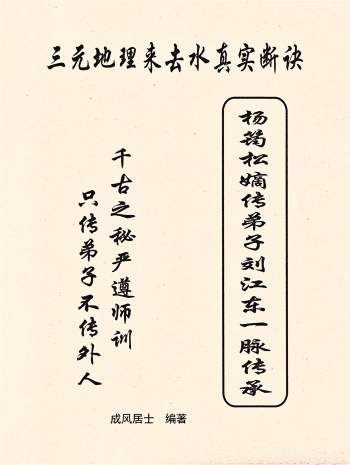 三元地理来去水真实断诀
杨筠松嫡传弟子刘江东一脉传承
千古之秘严遵师训
只传弟子不传外人
成风居士 编著